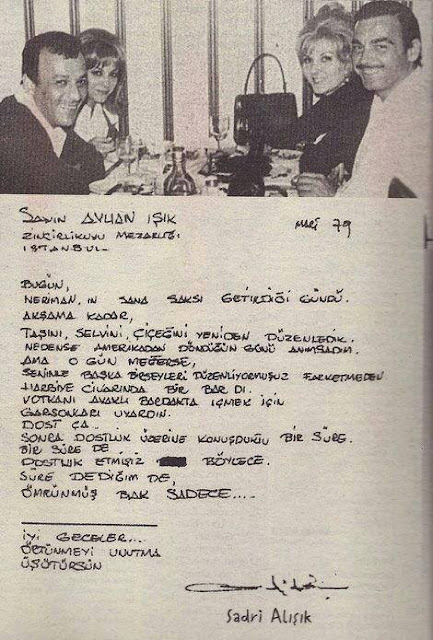 SAYIN AYHAN IŞIK
MART 79
ZİNCİRLİKUYU MEZARLIĞI
İSTANBUL
BUGÜN,
NERİMAN.IN SANA SAKSI GETİRDİĞİ GÜNDÜ.
AKŞAMA KADAR,
TAŞINI, SELVİNİ, ÇİÇEĞİNİ YENİDEN DÜZENLEDİK.
NEDENSE AMERİKADAN DÖNDÜĞÜN GÜNÜ ANIMSADIM.
AMA O GÜN MEĞERSE,
SENİNLE BAŞKA BİRŞEYLERİ DÜZENLİYORMUŞUZ FARKETMEDEN
HARBİYE CİVARINDA BİR BAR DI.
VOTKANI AYAKLI BARDAKTA İÇMEK İÇİN
GARSONLARI UYARDIN.
DOST ÇA...
SONRA DOSTLUK ÜZERİNE KONUŞDUKDU BİR SÜRE.
BİR SÜRE DE
DOSTLUK ETMİŞİZ BÖYLECE.
SÜRE DEDİĞİM DE,
ÖMRÜNMÜŞ BAK SADECE....
İYİ GECELER...
ÖRTÜNMEYİ UNUTMA
ÜŞÜTÜRSÜN
Sadri Alışık